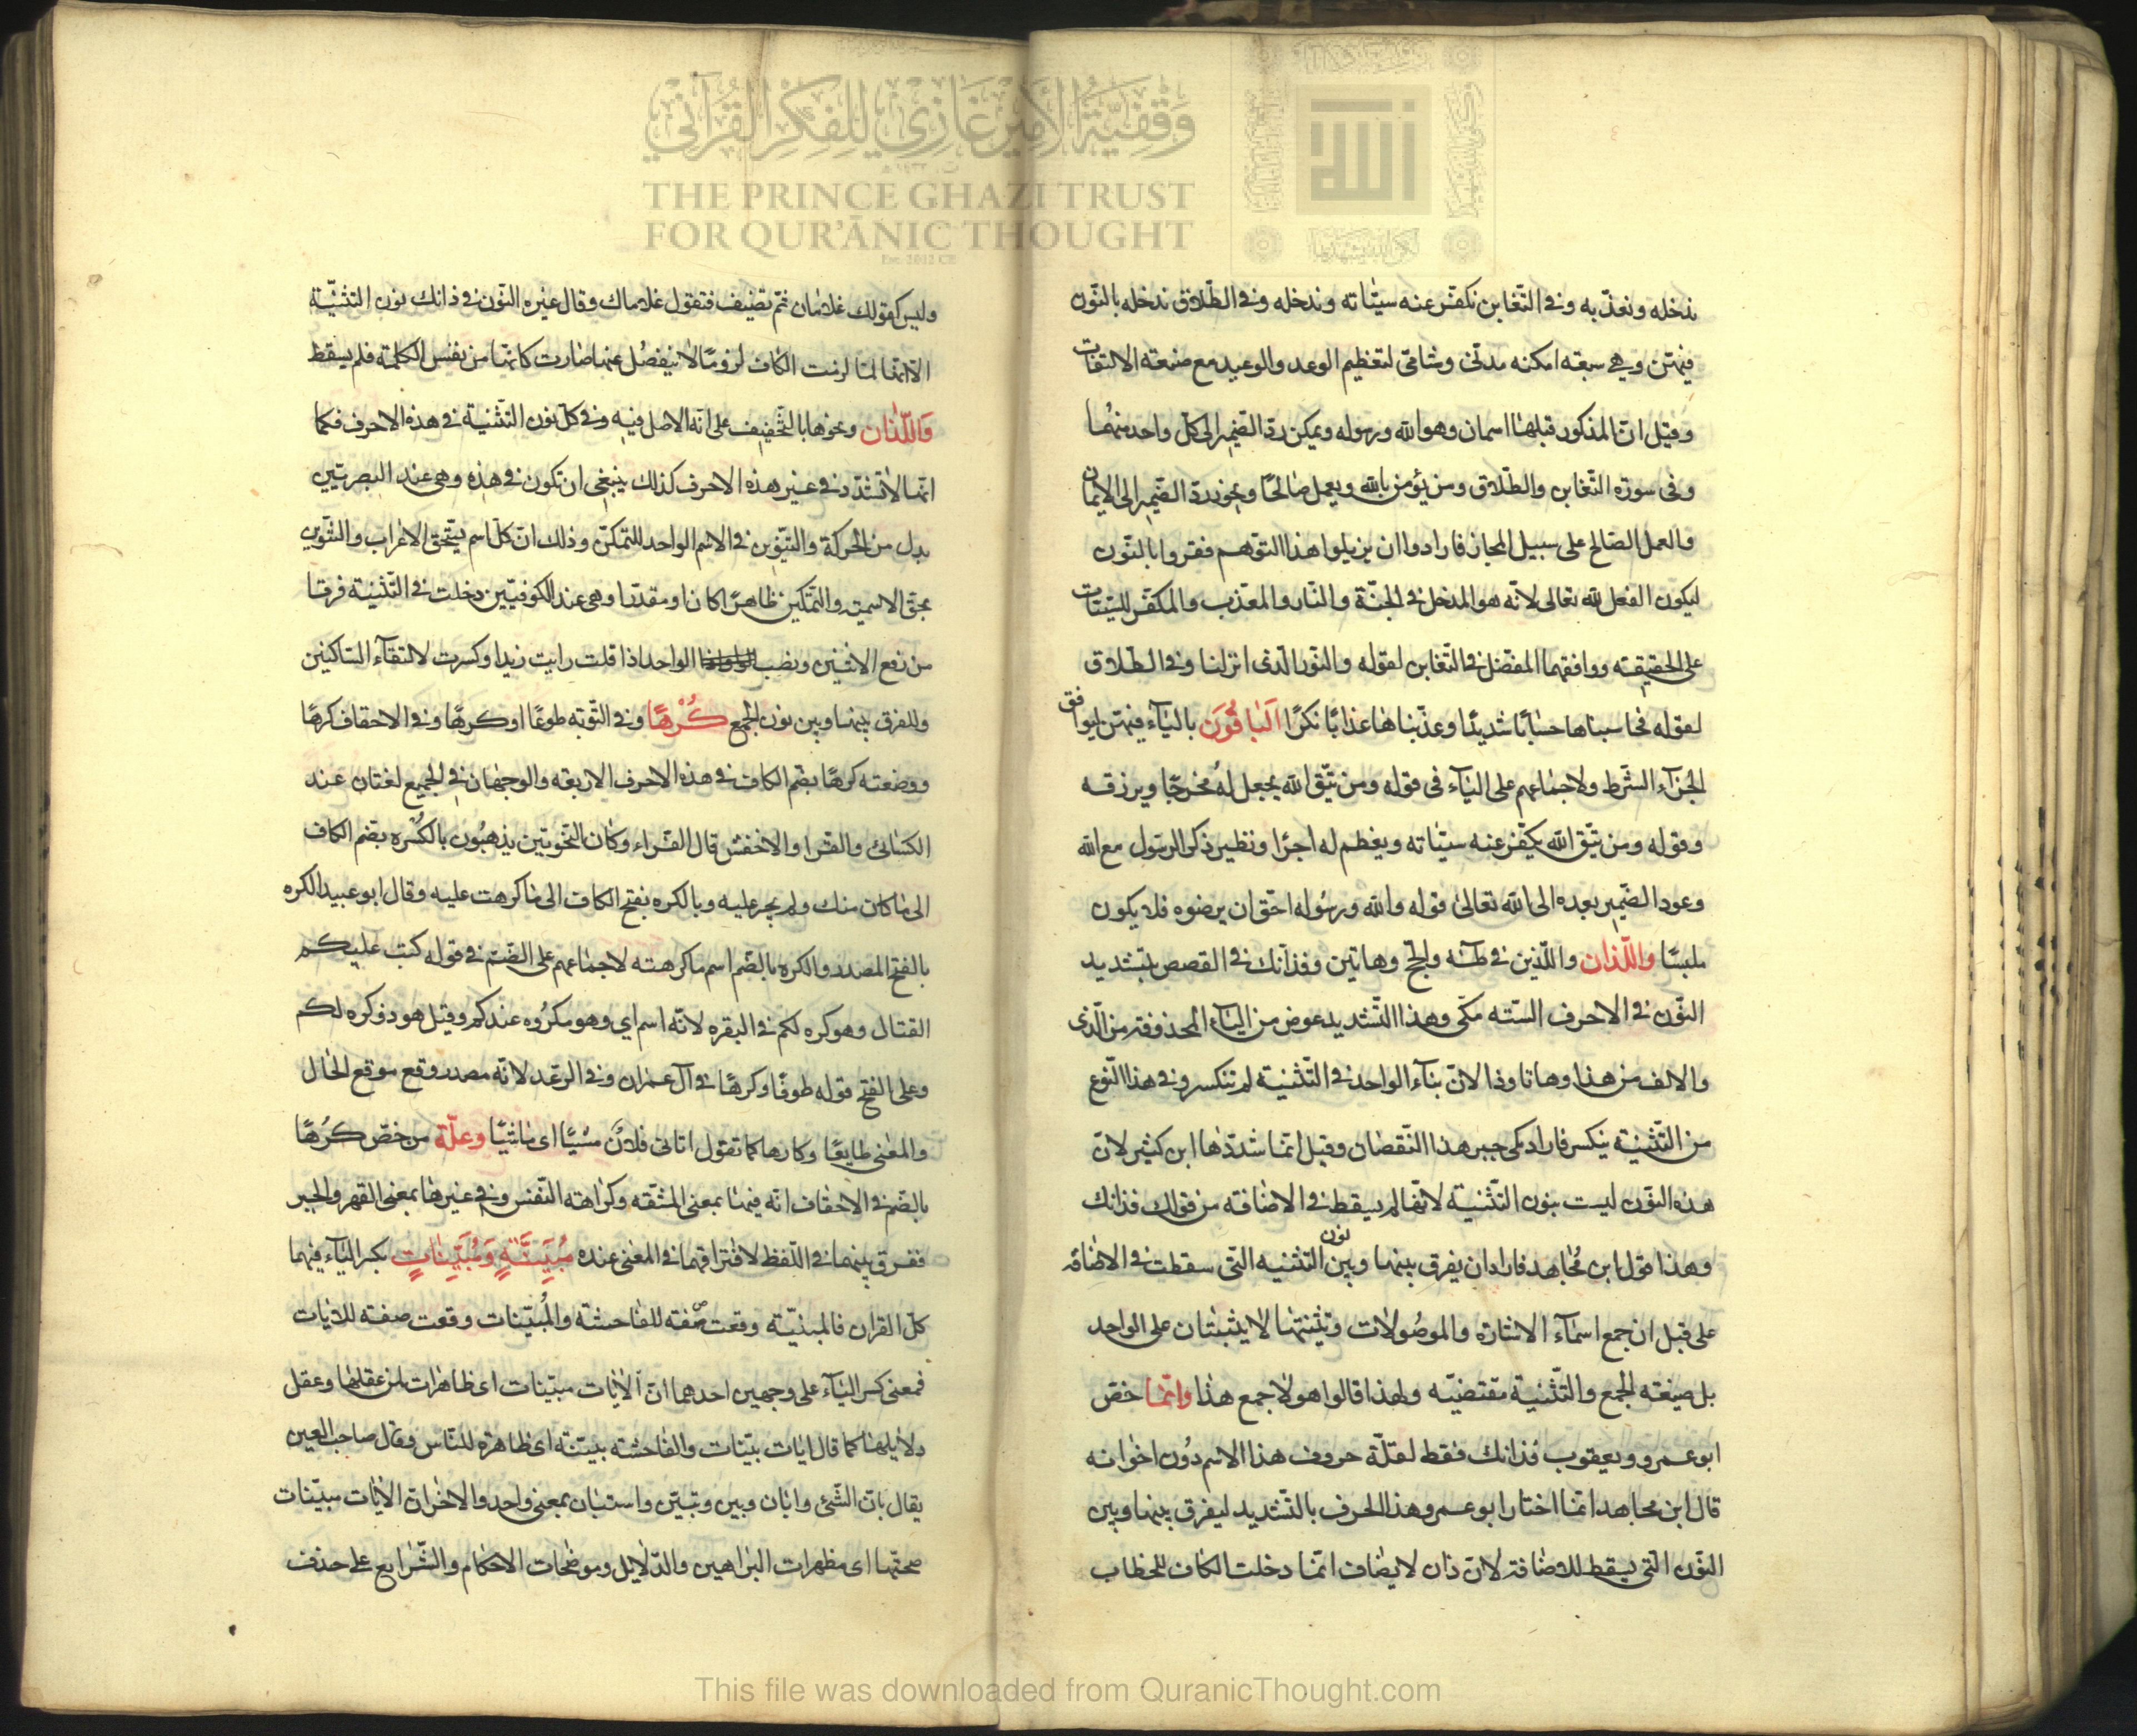 وقفية الأمير غازي للفكر القرآني
THE PRINCE GHAZI TRUST
FOR QUR'ĀNIC THOUGHT
Est. 2012 CE
ندخله ونعذّبه وفي التّغابن نكفّر عنه سيّاته وندخله وفي الطّلاق ندخله بالنّون
فيهنّ وهي سبعة امكنه مدنّى وشامّى لتعظيم الوعد والوعيد مع صنعة الالتفات
وقيل انّ المذكور قبلها اسمان وهو الله ورسوله ويمكن ردّ الضّمير الى كلّ واحد منهُما
وفى سورة التّغابن والطّلاق ومن يؤمن بالله ويعمل صالحًا ويجوز ردّ الضّمير الى الايمان
والعمل الصّالح على سبيل المجاز فارادوا ان يزيلوا هذا التوّهم فقروا بالنّون
ليكون الفعل لله تعالى لانّه هو المدخل في الجنّة والنّار والمعذّب والمكفّر للسّيّات
على الحقيقته ووافقهما المفضّل في التّغابن لقوله والنّور الّذى انزلنا وفي الطّلاق
لقوله فحاسبناها حسابًا شديدًا وعذّبناها عذابًا نكرًا اَلبَاقُونَ باليآء فيهنّ ليوافق
الجزآء الشّرط ولاجماعهم على اليآء فى قوله ومن يتّق الله يجعل لهُ مخرجًا ويرزقه
وقوله ومن يتّق الله يكفّر عنه سيّاته ويعظم له اجرًا ونظير ذكر الرّسول مع الله
وعود الضّمير بعده الى الله تعالى قوله والله ورسُوله احقّ ان يرضوه فلا يكون
ملبسًا واللّذان واللّذين في طٰه والحجّ وهاتين وفذانك في القصص بتشديد
النّون في الاحرف السّته مكّى وهذا التّشديد عوض من اليآء المحذوفة من الّذى
والالف من هذا وهاتا وذا لانّ بنآء الواحد في التّثنية لم تنكسر وفي هذا النّوع
من التّثنية ينكسر فاراد مكى جبر هذا النّقصان وقيل انّما شدّدها ابن كثير لانّ
هذه النّون ليست بنون التّثنية لانّها لم يسقط في الاضافة من قولك فذانك
وهذا قول ابن مُجاهد فاراد ان يفرق بينها وبين نون التثنيه التّى سقطت في الاضافه
على قبل ان جمع اسمآء الاشارة والموصُولات وتثنيتها لا يثبتان على الواحد
بل صيغة الجمع والتّثنية مقتضيّه ولهذا قالوا هولا جمع هذا وانّما خصّ
ابوعمرو ويعقوب فذانك فقط لقلّة حروف هذا الاسم دُون اخوانه
قال ابن مجاهد انّما اختار ابوعمرو هذا الحرف بالتّشديد ليفرق بينها وبين
النّون التّى يسقط للاضافة لانّ ذان لا يضاف انّما دخلت الكاف للخطاب
وليس كقولك غلامان ثمّ تضيف فتقول غلاماك وقال غيره النّون في ذانك نون التثنيّة
الّا انّها لمّا لزمت الكاف لزومًا لا ينفصُل عنها صارت كانّها من نفس الكلمة فلم يسقط
وَاللّذَان ونحوها بالتّخفيف على انّه الاصل فيه وفي كلّ نون التّثنية في هذه الاحرف فكما
انّها لا تشدّد في غير هذه الاحرف كذلك ينبغى ان تكون في هذه وهى عند البصريّين
بدل من الحركة والتنوين في الاسم الواحد للتمكّن وذلك انّ كلّ اسم يستحق الاعراب والتنوين
بحقّ الاسميّة والتمّكين ظاهرًا كانا ومقدّرا وهى عند الكوفيّين دخلت في التّثنية فرقا
من رفع الاثنين ونصب الواحد اذا قلت رايت زيدا وكسرت لالتقآء السّاكنين
وللفرق بينها وبين نون الجمع كُرْهًا وفي التّوبة طوعًا اوكرهًا وفي الاحقاف كرهًا
ووضعته كرهًا بضّم الكاف في هذه الاحرف الاربعة والوجهان في الجميع لغتان عند
الكسائى والفرا والاخفش قال الفرّاء وكان النّحويّين يذهبُون بالكُره بضّم الكاف
الى ما كان منك ولم يجبر عليه وبالكره بفتح الكاف الى ما كرهت عليه وقال ابوعبيد الكره
بالفتح المصدر والكره بالضّم اسم ما كرهته لاجماعهم على الضّمّ في قوله كتب عليكم
القتال وهو كره لكم في البقره لانّه اسم اى وهو مكرُوه عندكم وقيل هو ذو كره لكم
وعلى الفتح قوله طوعًا وكرهًا في آل عمران وفي الرّعد لانّه مصدر وقع موقع الحال
والمعنى طايعًا وكارها كما تقول اتانى فلانٌ مشيًا اى ماشيًا وعلّة من خصّ كُرهًا
بالضّم في الاحقاف انّه فيها بمعنى المشقّه وكراهته النّفس وفي غيرها بمعنى القهر والجبر
ففرق بينهما في اللّفظ لافتراقهما في المعنى عنده مُبَيِّنَةٍ وَمُبَيِّنَاتٍ بكسر اليآء فيهما
كلّ القران فالمبنيّة وقعت صّفة للفاحشة والمُبيّنات وقعت صفة للايات
فمعنى كسر اليآء على وجهين احدهما انّ الايات مبيّنات اى ظاهرات لمن عقلها وعقل
دلايلها كما قال ايات بيّنات والفاحشة بيّنة اى ظاهرة للنّاس وقال صاحب العين
يقال بان الشّئ وابان وبين وتبيّن واستبان بمعنى واحد والاخر انّ الايات مبيّنات
صحتّها اى مظهرات البراهين والدّلايل وموضحات الاحكام والشّرايع على حذف
This file was downloaded from QuranicThought.com